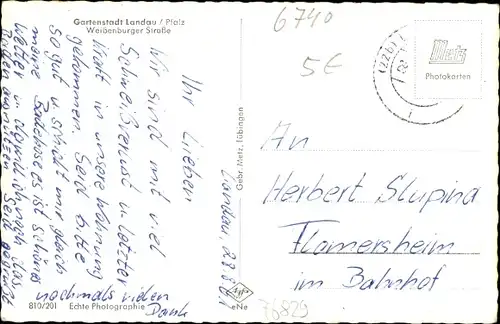 Gartenstadt Landau / Pfalz
Weißenburger Straße
6740
5€
(22b)
Metz
Photokarten
Landau, 23.8.61
Ihr Lieben
Wir sind mit viel
Schweiß in letzter
in unsere Wohnung
gekommen. Seid bitte
so gut u. schickt mir gleich
meine Badehose es ist schönes
Wetter u. da will ich noch das
Baden ausnützen. Seid gegrüßt
nochmals vielen
Dank
An
Herbert Slupina
Flamersheim
im Bahnhof
Gebr. Metz, Tübingen
810/201 Echte Photographie
eNe
76829